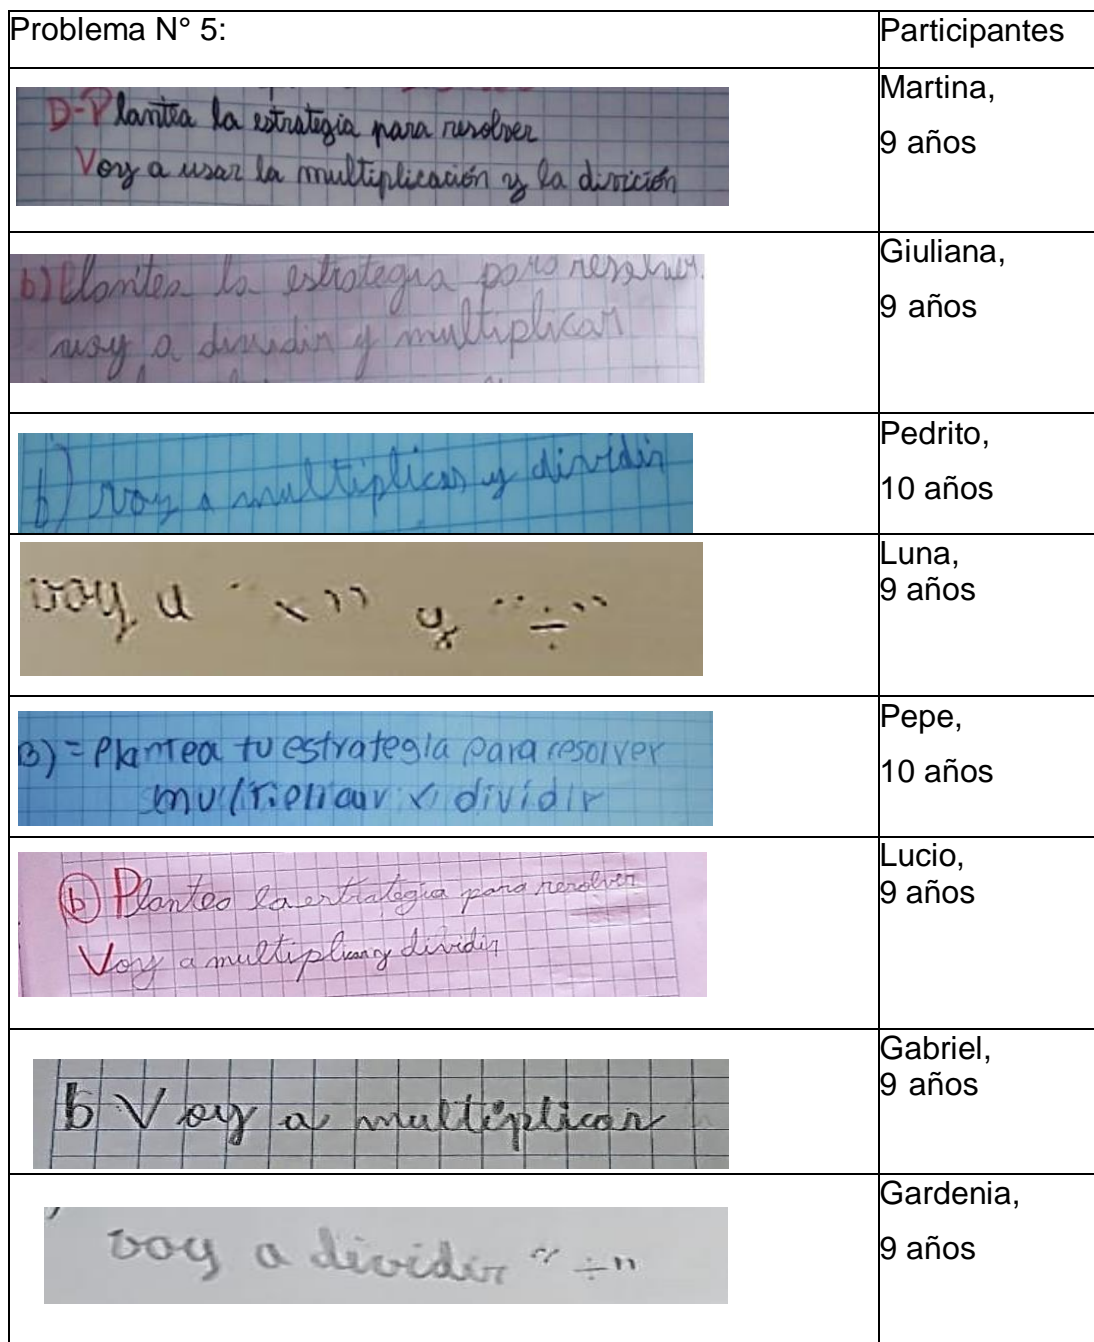 Problema N° 5:
Participantes
D-Plantea la estrategia para resolver
Voy a usar la multiplicación y la divición
Martina,
9 años
b) Plantea la estrategia para resolver.
voy a dividir y multiplicar
Giuliana,
9 años
b) voy a multiplicar y dividir
Pedrito,
10 años
voy a "x" y "÷"
Luna,
9 años
B)= Plantea tu estrategia para resolver
multiplicar y dividir
Pepe,
10 años
b) Planteo la estrategia para resolver
Voy a multiplicar y dividir
Lucio,
9 años
b Voy a multiplicar
Gabriel,
9 años
voy a dividir "÷"
Gardenia,
9 años